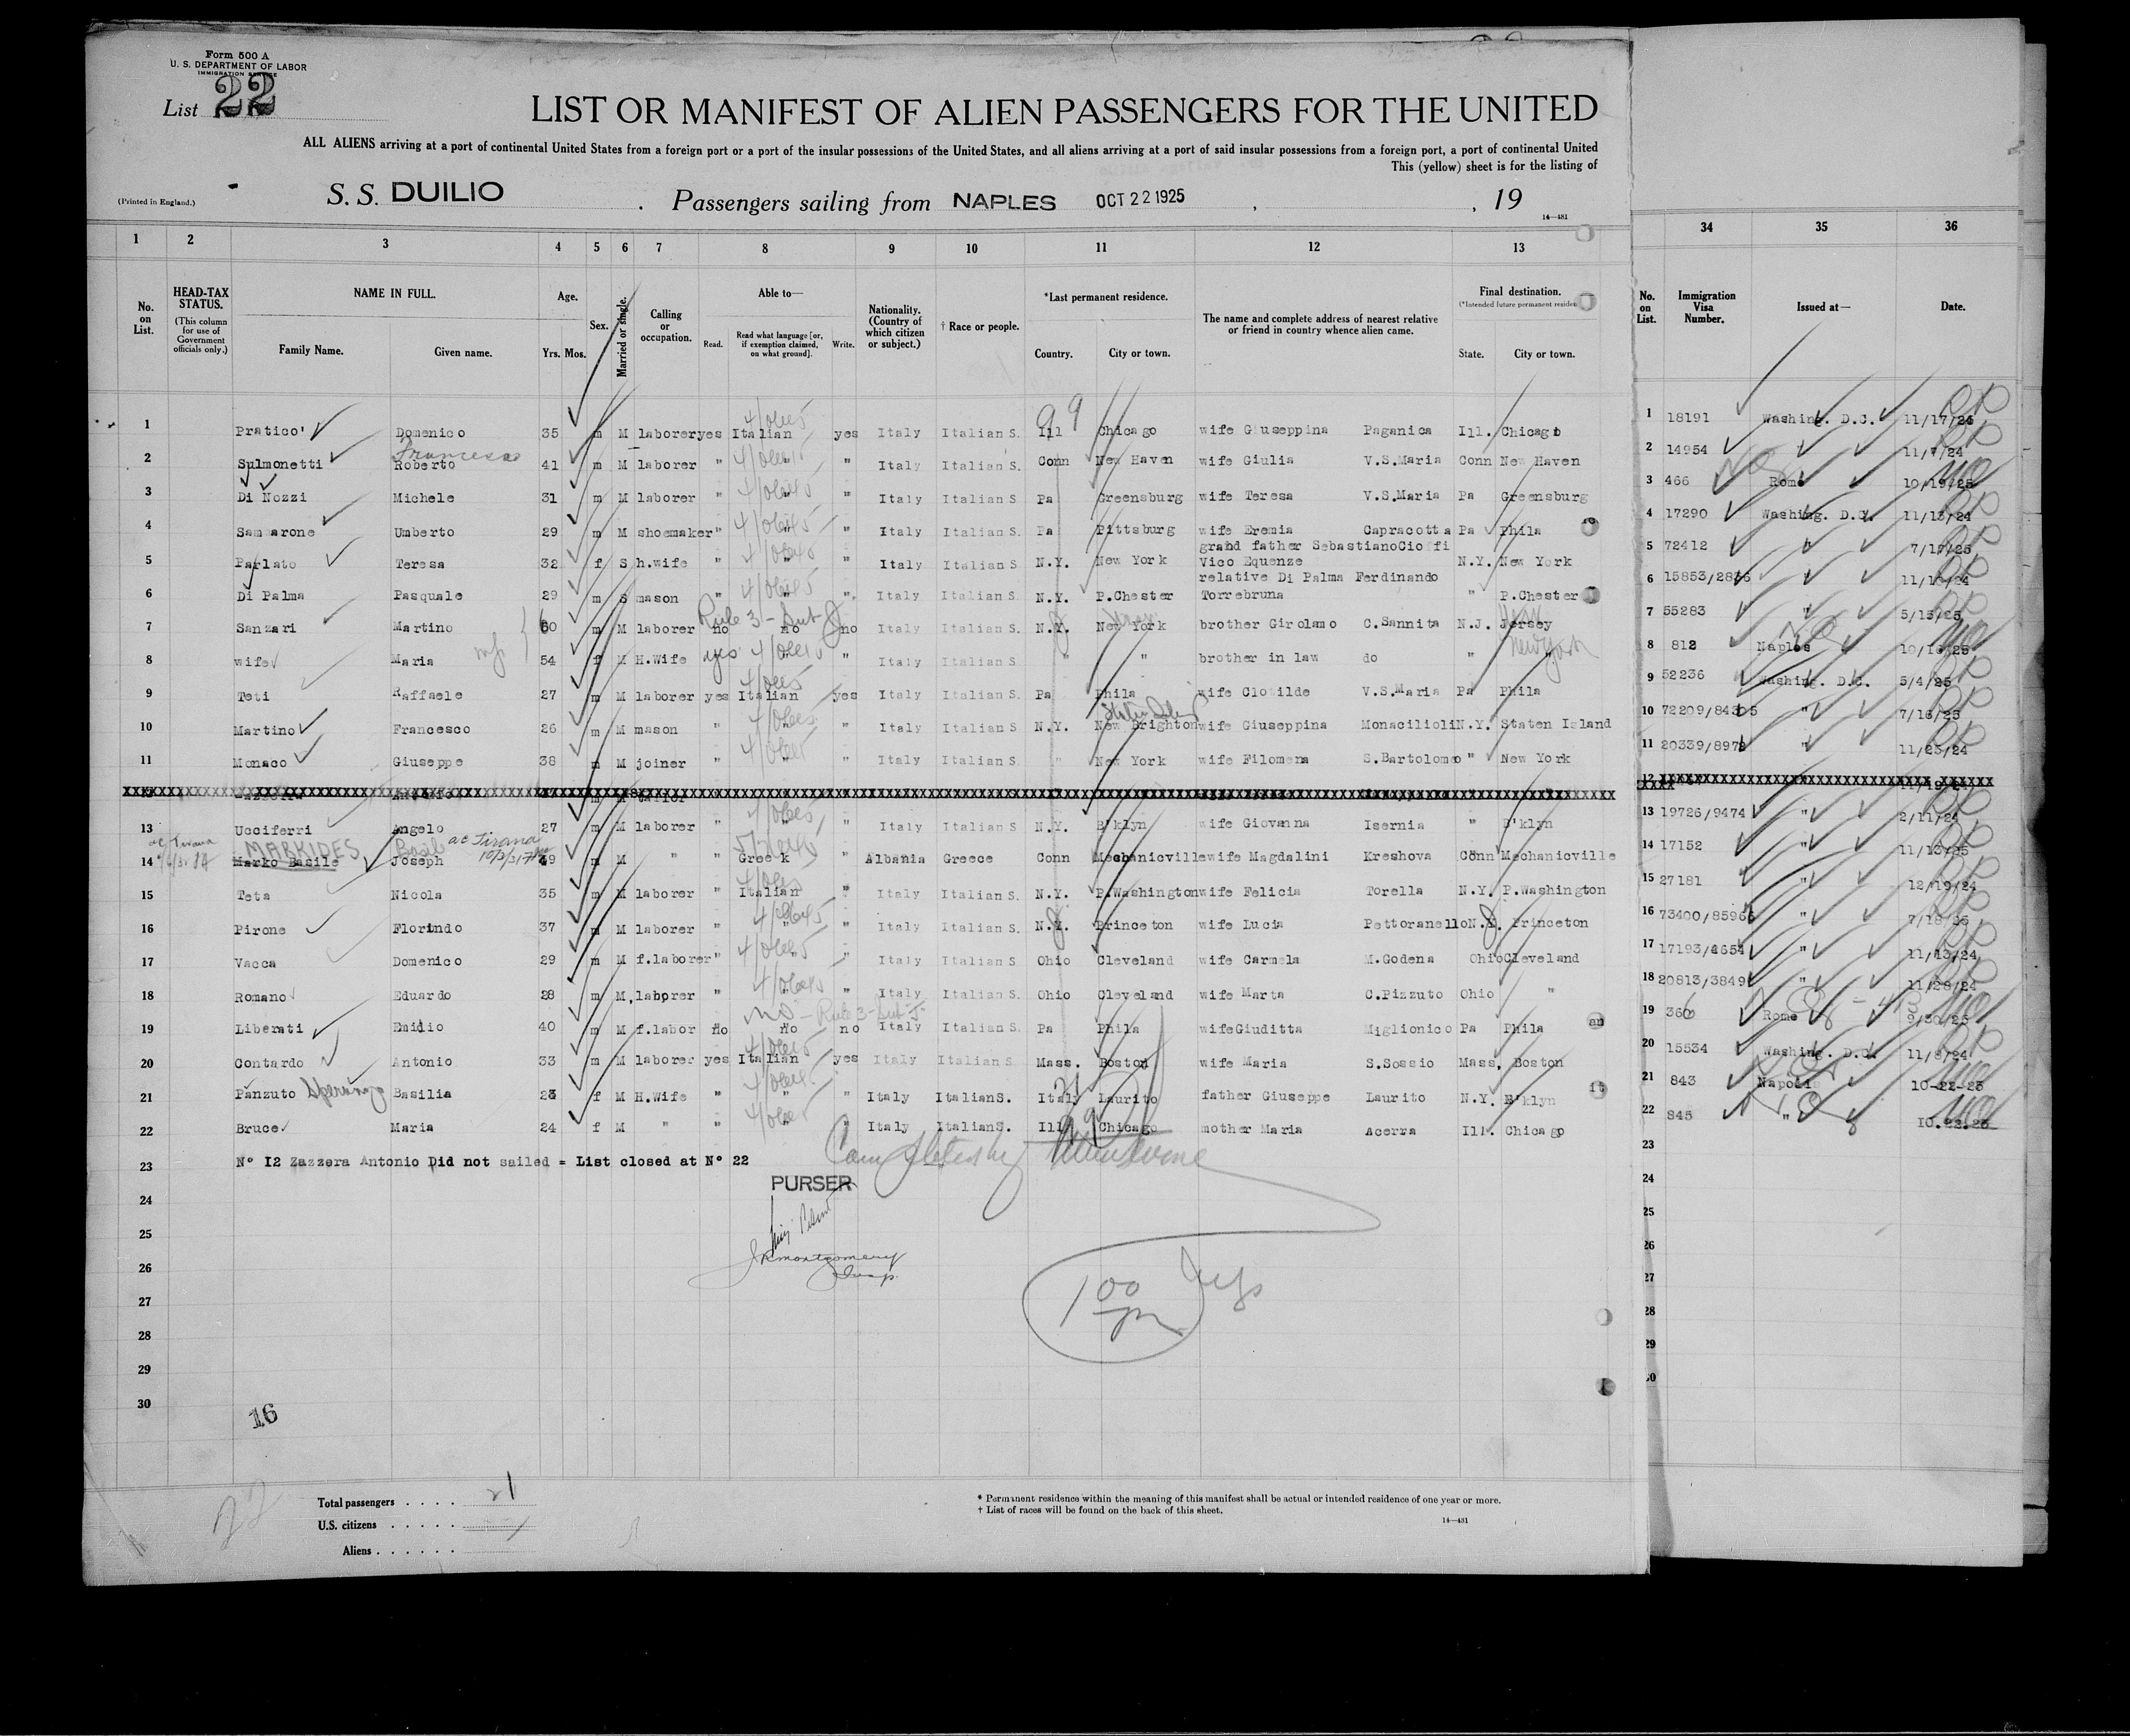 Form 500 A
U. S. DEPARTMENT OF LABOR
IMMIGRATION SERVICE
List 22
LIST OR MANIFEST OF ALIEN PASSENGERS FOR THE UNITED
ALL ALIENS arriving at a port of continental United States from a foreign port or a port of the insular possessions of the United States, and all aliens arriving at a port of said insular possessions from a foreign port, a port of continental United
This (yellow) sheet is for the listing of
(Printed in England.) S. S. DUILIO . Passengers sailing from NAPLES OCT 22 1925 , , 19
14—481
1 2 3 4 5 6 7 8 9 10 11 12 13 34 35 36
No. on List. HEAD-TAX STATUS. (This column for use of Government officials only.) NAME IN FULL. Family Name. Given name. Age. Yrs. Mos. Sex. Married or single. Calling or occupation. Able to— Read. Read what language [or, if exemption claimed, on what ground]. Write. Nationality. (Country of which citizen or subject.) † Race or people. *Last permanent residence. Country. City or town. The name and complete address of nearest relative or friend in country whence alien came. Final destination. (*Intended future permanent residen State. City or town. No. on List. Immigration Visa Number. Issued at— Date.
1 Pratico' Domenico 35 m M laborer yes Italian yes Italy Italian S. Ill Chicago wife Giuseppina Paganica Ill. Chicago 1 18191 Washing. D.C. 11/17/24
Francesco
2 Sulmonetti Roberto 41 m M laborer " " " Italy Italian S. Conn New Haven wife Giulia V.S.Maria Conn New Haven 2 14954 11/7/24
3 Di Nozzi Michele 31 m M laborer " " " Italy Italian S Pa Greensburg wife Teresa V.S.Maria Pa Greensburg 3 466 Rome 10/19/25
4 Sammarone Umberto 29 m M shoemaker " " " Italy Italian S. Pa Pittsburg wife Eremia Capracotta Pa Phila 4 17290 Washing. D.C. 11/13/24
grand father Sebastiano Cioffi
5 Parlato Teresa 32 f S h.wife " " " Italy Italian S. N.Y. New York Vico Equenze N.Y. New York 5 72412 " 7/17/25
relative Di Palma Ferdinando
6 Di Palma Pasquale 29 m S mason " " " Italy Italian S. N.Y. P.Chester Torrebruna " P.Chester 6 15853/2836 11/10/24
Rule 3 - Sub J
7 Sanzari Martino 60 m M laborer no no no Italy Italian S. N.Y. New York brother Girolamo C.Sannita N.J. Jersey 7 55283 " 5/15/25
8 wife Maria 54 f M H.Wife yes " " Italy Italian S. " " brother in law do " " New York 8 812 Naples 10/16/25
9 Teti Raffaele 27 m M laborer yes Italian yes Italy Italian S. Pa Phila wife Clotilde V.S.Maria Pa Phila 9 52236 Washing. D.C. 5/4/25
Staten Island
10 Martino Francesco 26 m M mason " " " Italy Italian S. N.Y. New Brighton wife Giuseppina Monacilioli N.Y. Staten Island 10 72209/84305 " 7/16/25
11 Monaco Giuseppe 38 m M joiner " " " Italy Italian S. " New York wife Filomena S.Bartolomeo " New York 11 20339/8972 " 11/25/24
13 Ucciferri Angelo 27 m M laborer " " " Italy Italian S N.Y. B'klyn wife Giovanna Isernia " B'klyn 13 19726/9474 " 2/11/24
MARKIDES Basil
14 Marko Basile Joseph 49 m M " " Greek " Albania Greece Conn Mechanicville wife Magdalini Kreshova Conn Mechanicville 14 17152 " 11/13/25
15 Teta Nicola 35 m M laborer " Italian " Italy Italian S. N.Y. P.Washington wife Felicia Torella N.Y. P.Washington 15 27181 " 12/19/24
16 Pirone Florindo 37 m M laborer " " " Italy Italian S. N.J. Princeton wife Lucia Pettoranello N.J. Princeton 16 73400/85966 " 7/18/25
17 Vacca Domenico 29 m M f.laborer " " " Italy Italian S Ohio Cleveland wife Carmela M.Godena Ohio Cleveland 17 17193/4654 " 11/13/24
18 Romano Eduardo 28 m M laborer " " " Italy Italian S. Ohio Cleveland wife Marta C.Pizzuto Ohio " 18 20813/3849 " 11/28/24
no - Rule 3 - Sub J
19 Liberati Emidio 40 m M f.labor no no no Italy Italian S. Pa Phila wife Giuditta Miglionico Pa Phila 19 366 Rome 9/30/25
20 Contardo Antonio 33 m M laborer yes Italian yes Italy Italian S Mass. Boston wife Maria S.Sossio Mass. Boston 20 15534 Washing. D.C. 11/8/24
21 Panzuto Speranza Basilia 23 f M H.Wife " " " Italy Italian S. Italy Laurito father Giuseppe Laurito N.Y. B'klyn 21 843 Napoli 10-22-25
22 Bruce Maria 24 f M " " " " Italy Italian S. Ill Chicago mother Maria Acerra Ill. Chicago 22 845 " 10.22.25
23 N° I2 Zazzera Antonio Did not sailed = List closed at N° 22 23
PURSER
24 24
25 25
JR Montgomery
Insp.
26 26
27 27
1 00 pm
28 28
29 29
30
16
Total passengers . . . . 21
U.S. citizens . . . . .
Aliens . . . . . .
* Permanent residence within the meaning of this manifest shall be actual or intended residence of one year or more.
† List of races will be found on the back of this sheet.
14—431